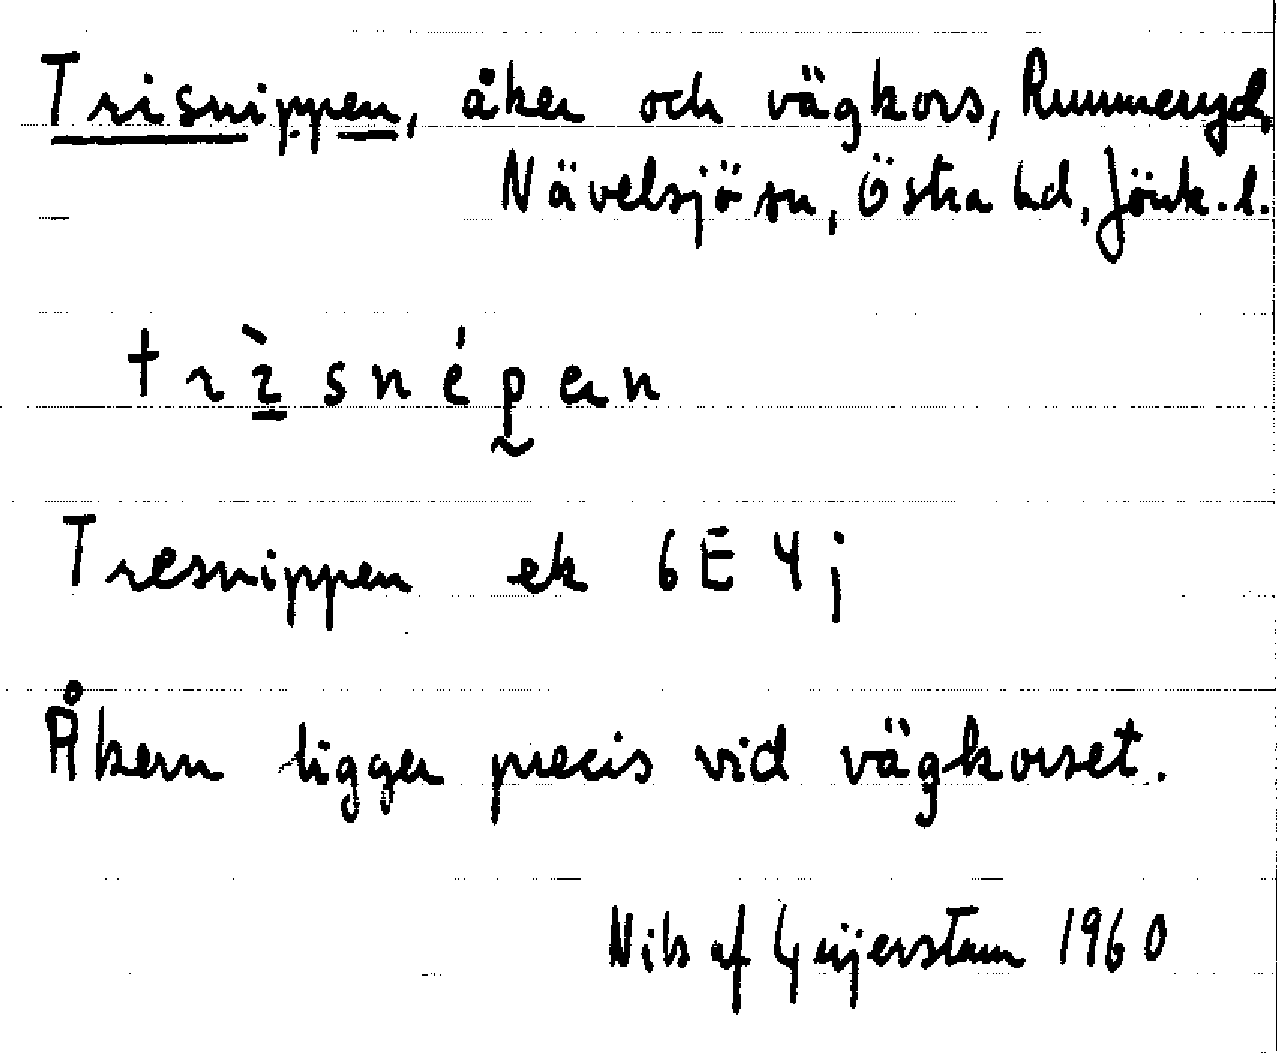 Trisnippen, åker och vägkors, Rummeryd,
Nävelsjö sn, Östra hd, Jönk. l.
trìsnépen
Tresnippen ek 6E 4j
Åkern ligger precis vid vägkorset.
Nils af Geijerstam 1960